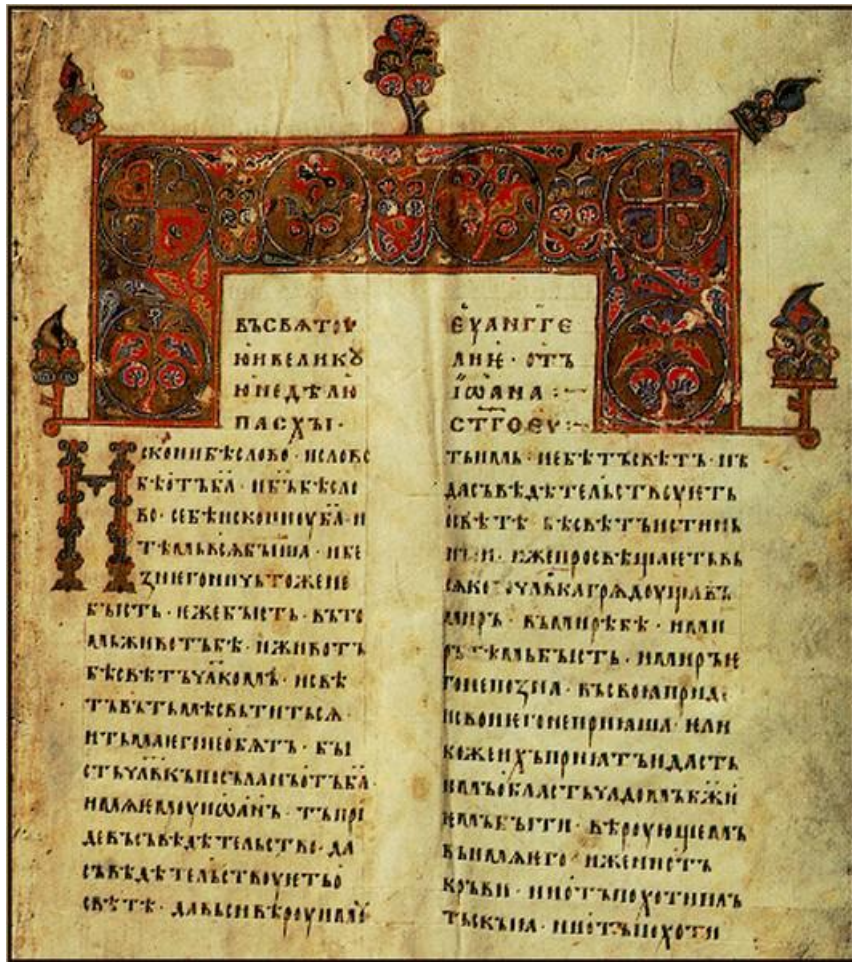 ВЪСВѦТОУ
ЮИВЕЛИКꙊ
ЮНЕДѢЛЮ
ПАСХЫ·
Исконибѣслово·ислово
бѣотъба҃·ибъ҃бѣсло
во·себѣисконноуба҃·и
тѣмьвсѧбыша·ибе
знегоничьтожене
бысть·ѥжебысть·въто
мьживотъбѣ·иживотъ
бѣсвѣтъчл҃комъ·исвѣ
тъвътьмѣсвьтитьсѧ·
итьмаѥгонеобѧтъ·бы
стьчл҃вкъпосъланъотъба҃·
имѧѥмоуиѡанъ·тъпри
девъсъвѣдѣтельство·да
съвѣдѣтельствоуѥтьо
свѣтѣ·давьсивѣроуимоу
ЕѴАНГГЕ
ЛИѤ·ОТЪ
ІѠАНА:~
СТ҃ГОЕѴ:~
тьимь·небѣтъсвѣтъ·нъ
дасъвѣдѣтельствоуѥть
освѣтѣ·бѣсвѣтъистинь
ныи·ижепросвѣщаѥтьвь
сѧкогочл҃вкагрѧдоущавъ
миръ·въмирѣбѣ·ими
ръѣмьбысть·имиръѥ
гонепозна·въсвояприде
исвоиѥгонеприяша·ели
кожеихъприятъидасть
имъобластьчадомъбж҃и
ѥмъбыти·вѣроующемъ
вьимѧѥго·иженеотъ
кръви·ниотъпохотипль
тьскыѧ·ниотъпохоти